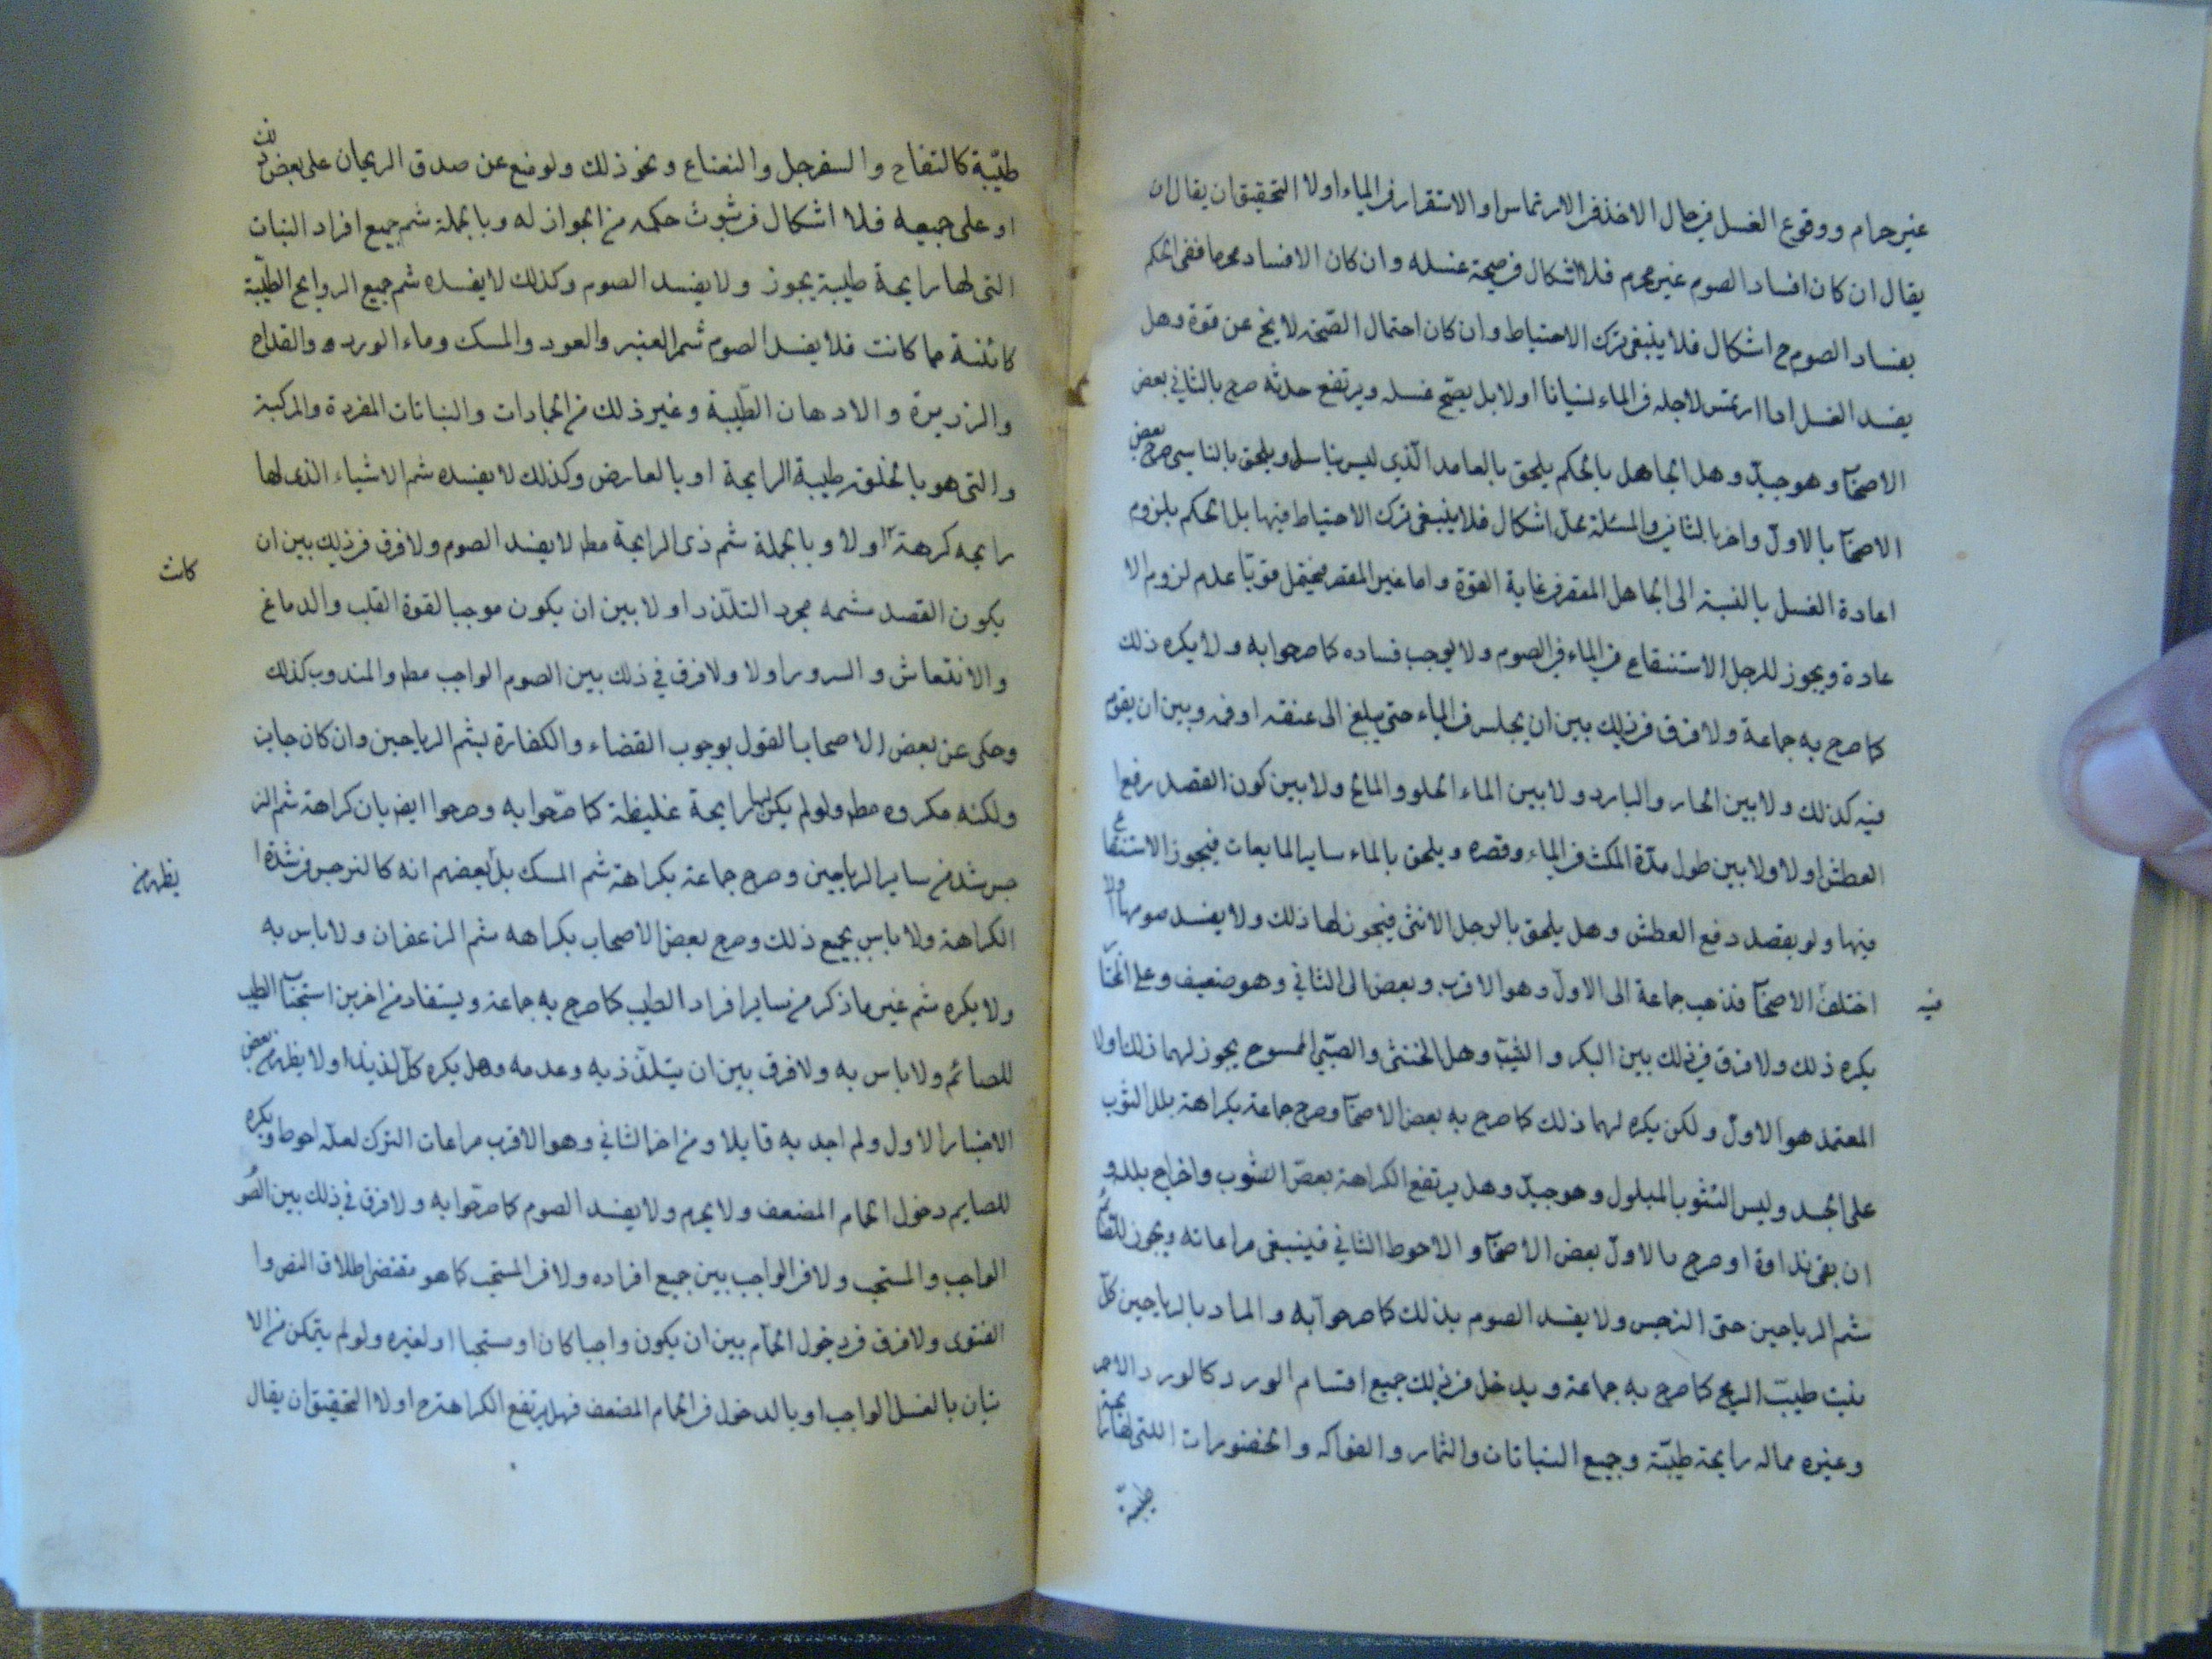 غير حرام ووقوع الغسل في حال الاخذ في الارتماس او الاستقرار في الماء اولا التحقيق ان يقال ان
يقال ان كان افساد الصوم غير محرم فلا اشكال في صحة غسله وان كان الافساد محرما ففى الحكم
بفساد الصوم ح اشكال فلا ينبغى ترك الاحتياط وان كان احتمال الصحة لا يخ عن قوة وهل
يفسد الغسل اما ارتمس لاجله في الماء نسيانا اولا بل يصح غسله ويرتفع حدثه صرح بالثاني بعض
الاصحاب وهو جيد وهل الجاهل بالحكم يلحق بالعامد الذي ليس بناسى او يلحق بالناسى صرح بعض
الاصحاب بالاول واخر بالثاني والمسئلة محل اشكال فلا ينبغى ترك الاحتياط فيها بل الحكم بلزوم
اعادة الغسل بالنسبة الى الجاهل المقصر في غاية القوة واما غير المقصر فيحتمل قويا عدم لزوم الا
عادة ويجوز للرجل الاستنقاع في الماء في الصوم ولا يوجب فساده كما صرحوا به ولا يكره ذلك
كما صرح به جماعة ولا فرق في ذلك بين ان يجلس في الماء حتى يبلغ الى عنقه او فمه وبين ان يقوم
فيه كذلك ولا بين الحار والبارد ولا بين الماء الحلو والمالح ولا بين كون القصد رفع ا
لعطش اولا ولا بين طول مدة المكث في الماء وقصره ويلحق بالماء ساير المايعات فيجوز الاستنقاع
فيها ولو بقصد دفع العطش وهل يلحق بالرجل الانثى فيجوز لها ذلك ولا يفسد صومها اولا
اختلف فيه الاصحاب فذهب جماعة الى الاول وهو الاقرب وبعض الى الثاني وهو ضعيف وعلى المختار
يكره ذلك ولا فرق في ذلك بين البكر والثيب وهل الخنثى والصبي الممسوح يجوز لهما ذلك اولا
المعتمد هو الاول ولكن يكره لهما ذلك كما صرح به بعض الاصحاب وصرح جماعة بكراهة بلل الثوب
على الجسد وليس الثوب المبلول وهو جيد وهل يرتفع الكراهة بعصر الثوب واخراج بلله و
ان بقى نداوة او صرح بالاول بعض الاصحاب والاحوط الثاني فينبغى مراعاته ويجوز للصائم
شم الرياحين حتى النرجس ولا يفسد الصوم بذلك كما صرحوا به والمراد بالرياحين كل
نبت طيب الريح كما صرح به جماعة ويدخل في ذلك جميع اقسام الورد كالورد الاحمر
وغيره مما له رايحة طيبة وجميع النباتات والثمار والفواكه والخضورات التى لها رايحة
طيبة
طيبة كالتفاح والسفرجل والنعناع ونحو ذلك ولو منع عن صدق الريحان على بعض ذلك
او على جميعه فلا اشكال في ثبوت حكمه من الجواز له وبالجملة شم جميع افراد النبات
التى لها رايحة طيبة يجوز ولا يفسد الصوم وكذلك لا يفسده شم جميع الروايح الطيبة
كائنة ما كانت فلا يفسد الصوم شم العنبر والعود والمسك وماء الورد والقداح
والزريرة والادهان الطيبة وغير ذلك من الجمادات والنباتات المفردة والمركبة
والتى هو بالخلقة طيبة الرايحة او بالعارض وكذلك لا يفسده شم الاشياء الذى لها
رايحه كرهة اولا وبالجملة شم ذى الرايحة مطم لا يفسد الصوم ولا فرق في ذلك بين ان كانت
يكون القصد مشمه مجرد التلذذ اولا بين ان يكون موجبا لقوة القلب والدماغ
والانتعاش والسرور اولا ولا فرق في ذلك بين الصوم الواجب مطم والمندوب كذلك
وحكى عن بعض الاصحاب القول بوجوب القضاء والكفارة بشم الرياحين وان كان جايز
ولكنه مكروه مطم ولو لم يكن لها رايحة غليظة كما صرحوا به وصرحوا ايض بان كراهة شم النر
جس اشد من ساير الرياحين وصرح جماعة بكراهة شم المسك بل يظهر من بعضهم انه كالنرجس في شدة ا
لكراهة ولا باس بجميع ذلك وصرح بعض الاصحاب بكراهه شم الزعفران ولا باس به
ولا يكره شم غير ما ذكر من ساير افراد الطيب كما صرح به جماعة ويستفاد من اخرين استحباب الطيب
للصائم ولا باس به ولا فرق بين ان يتلذذ به وعدمه وهل يكره كل لذيذ اولا يظهر من بعض
الاخبار الاول ولم اجد به قايلا ومن اخر الثاني وهو الاقرب مراعات الترك لعله احوط ويكره
للصايم دخول الحمام المضعف ولا يحرم ولا يفسد الصوم كما صرحوا به ولا فرق في ذلك بين الصوم
الواجب والمستحب ولا في الواجب بين جميع افراده ولا في المستحب كما هو مقتضى اطلاق النص وا
لفتوى ولا فرق في دخول الحمام بين ان يكون واجبا كان او مستحبا او لغيره ولو لم يتمكن من الا
تيان بالغسل الواجب او بالدخول في الحمام المضعف فهل يرتفع الكراهة ح اولا التحقيق ان يقال